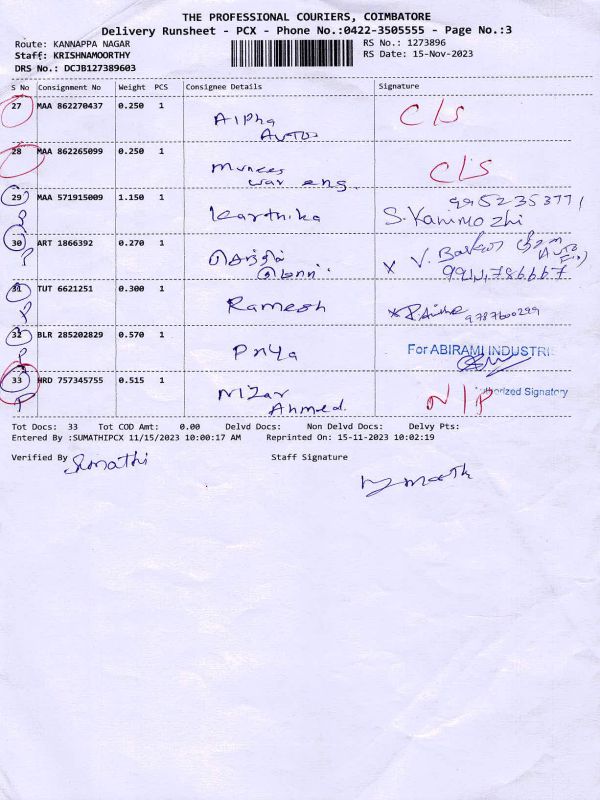 THE PROFESSIONAL COURIERS, COIMBATORE
Delivery Runsheet - PCX - Phone No.:0422-3505555 - Page No.:3
Route: KANNAPPA NAGAR
RS No.: 1273896
Staff: KRISHNAMOORTHY
RS Date: 15-Nov-2023
DRS No.: DCJB127389603
S No Consignment No Weight PCS Consignee Details Signature
27 MAA 862270437 0.250 1 Alpha Autos C/S
28 MAA 862265099 0.250 1 war eng. C/S
29 MAA 571915009 1.150 1 Karthika 9952353771
S. Kanimozhi
30 ART 1866392 0.270 1 X V.
31 TUT 6621251 0.300 1 Ramesh 9787600299
32 BLR 285202829 0.570 1 Priya For ABIRAMI INDUSTRIE
33 HRD 757345755 0.515 1 Nizar Ahmed. N/P Authorized Signatory
Tot Docs: 33 Tot COD Amt: 0.00 Delvd Docs: Non Delvd Docs: Delvy Pts:
Entered By :SUMATHIPCX 11/15/2023 10:00:17 AM Reprinted On: 15-11-2023 10:02:19
Verified By Sumathi Staff Signature